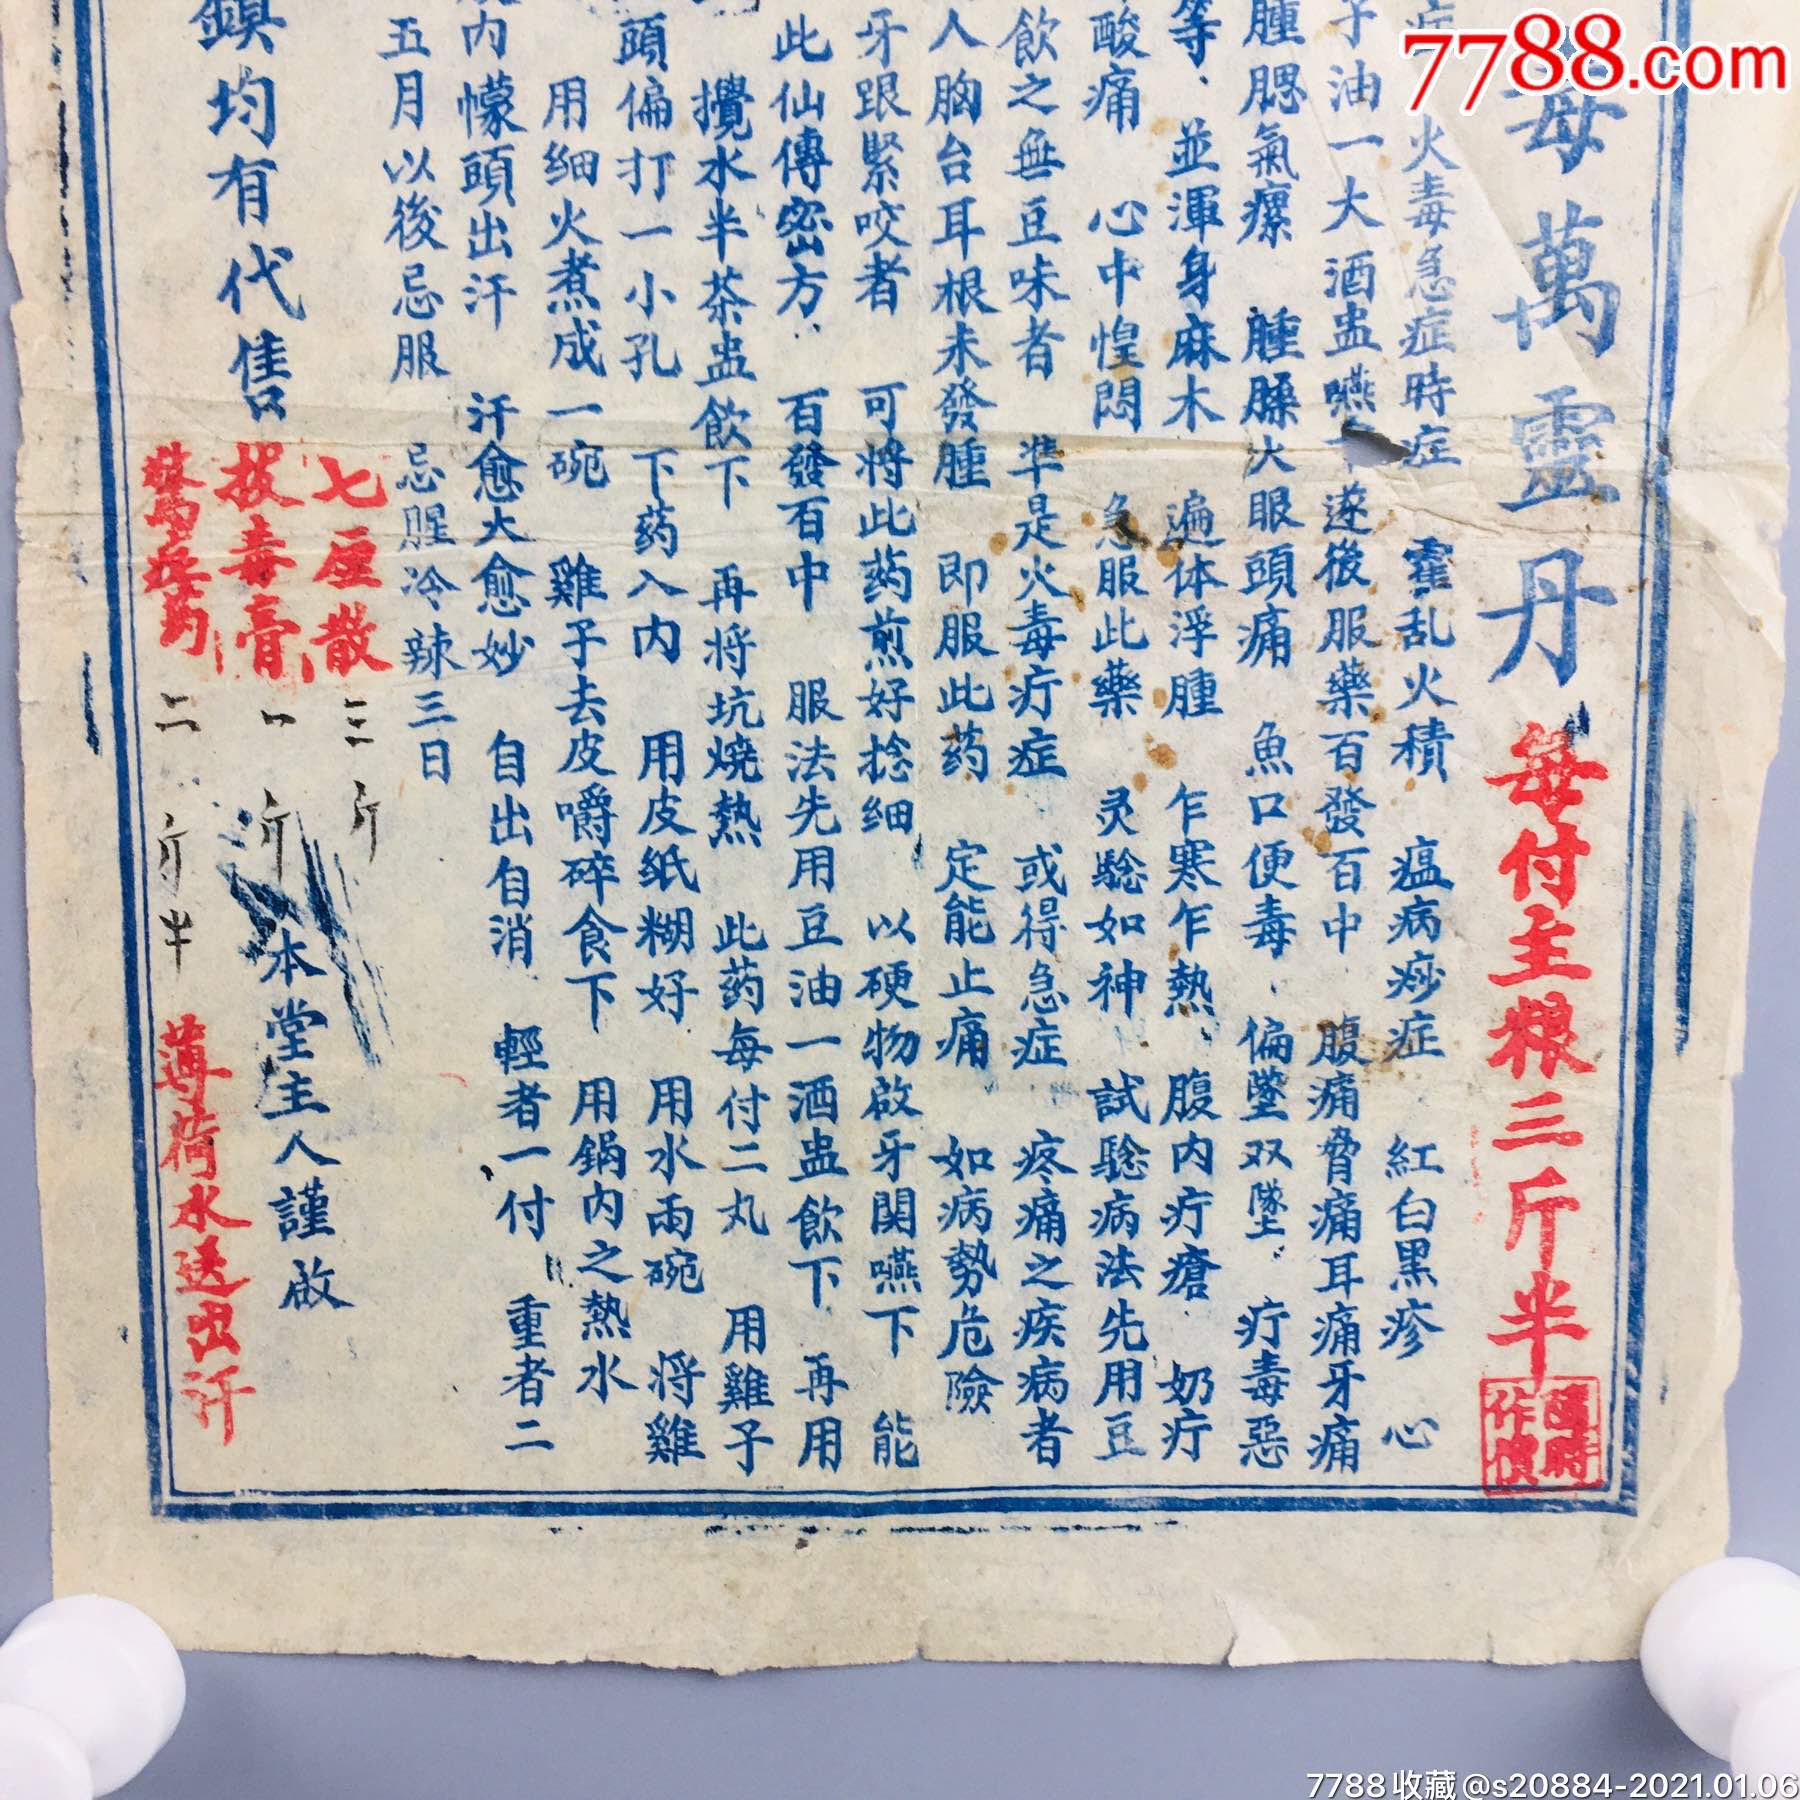 7788.com
毒萬靈丹 每付主粮三斤半
隨時作價
火毒急症時症 霍乱火積 瘟病痧症 紅白黑疹 心
子油一大酒盅嚥下 遂後服藥百發百中 腹痛脅痛耳痛牙痛
腫腮氣瘰 腫臊火眼頭痛 魚口便毒 偏墜双墜 疔毒惡
等 並渾身麻木 遍体浮腫 乍寒乍熱 腹内疔瘡 奶疔
酸痛 心中惶悶 急服此藥 灵驗如神 試驗病法先用豆
飲之無豆味者 準是火毒疔症 或得急症 疼痛之疾病者
人胸台耳根未發腫 即服此药 定能止痛 如病勢危險
牙跟緊咬者 可將此药煎好捻细 以硬物啟牙関嚥下 能
此仙傳密方 百發百中 服法先用豆油一酒盅飲下 再用
攪水半茶盅飲下 再将坑燒熱 此药每付二丸 用雞子
頭偏打一小孔 下药入内 用皮纸糊好 用水兩碗 將雞
用细火煮成一碗 雞子去皮嚼碎食下 用鍋内之熱水
内幪頭出汗 汗愈大愈妙 自出自消 輕者一付 重者二
五月以後忌服 忌腥冷辣三日
鎮均有代售
本堂主人謹啟
七厘散 三斤
拔毒膏 一斤
二斤半
薄荷水送出汗
7788收藏@s20884-2021.01.06